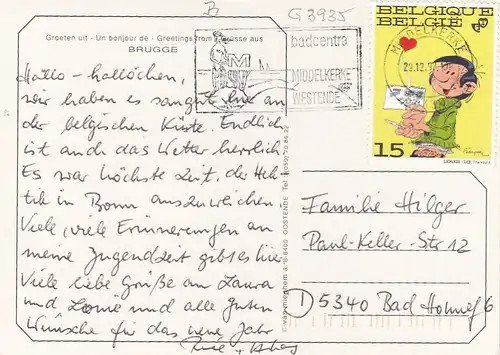 B
G 3935
Groeten uit - Un bonjour de - Greetings from - Grüsse aus
BRUGGE
badcentra
M
MIDDELKERKE
WESTENDE
BELGIQUE
BELGIË
MIDDELKERKE
29.12.9
15
Hallo - hallöchen,
wir haben es sanft hier an
der belgischen Küste. Endlich
ist auch das Wetter herrlich.
Es war höchste Zeit, der Hek-
tik in Bonn auszuweichen.
Viele, viele Erinnerungen an
meine Jugendzeit gibt es hier.
Viele liebe Grüße an Laura
und Leonie und alle guten
Wünsche für das neue Jahr
OOSTENDE Tel. (059) 70 86 22
Familie Hilger
Paul-Keller-Str 12
D 5340 Bad Honnef 6